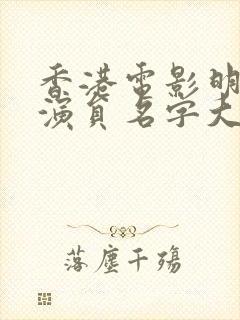 香港電影明
演員名字大
落塵千殤